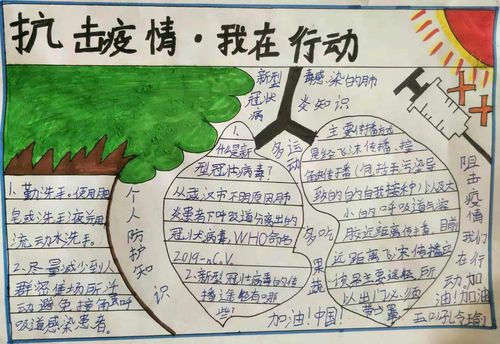 抗击疫情·我在行动
新型冠状病
毒感染的肺
炎知识
1.勤洗手。使用肥
皂或洗手液并用
流动水洗手。
2.尽量减少到人
群密集场所活
动避免接触呼
吸道感染患者。
个人防护知识
1.
什么是新
型冠状病毒?
从武汉市不明原因肺
炎患者下呼吸道分离出的
冠状病毒,WHO命名
2019-nCoV.
2.新型冠状病毒的传
播途径有哪
些?
多运动
多吃果蔬
主要传播方式
是经飞沫传播、接
触传播(包括手污染导
致的自我接种)以及大
小的呼吸道气溶
胶近距离传播。目前
近距离飞沫传播应
该是主要途径,所
以出门必须
带口罩
加油!中国!
阻击疫情我们在行动。
加油!加油!